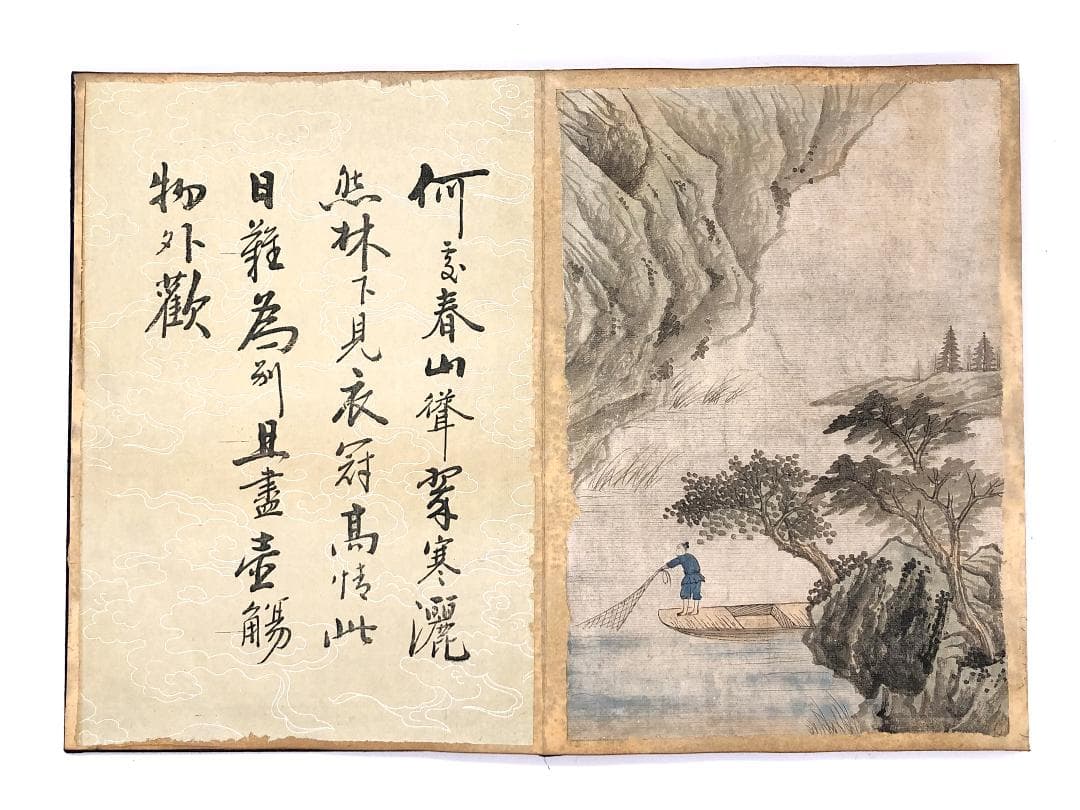 何處春山聳翠寒灑
然林下見衣冠高情此
日難為別且盡壺觴
物外歡